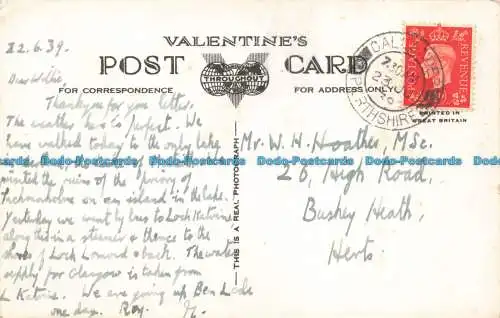 VALENTINE'S
POST CARD
THROUGHOUT
FOR CORRESPONDENCE
FOR ADDRESS ONLY
22.6.39.
Dear Willie,
Thank you for your letter.
The weather has been perfect. We
have walked today to the only lake
visited the ruins of the priory of
Inchmahome on an island in the lake.
Yesterday we went by bus to Loch Katrine
along this in a steamer & thence to the
shores of Loch Lomond & back. The water
supply for Glasgow is taken from
L Katrine. We are going up Ben Ledi
one day. Roy.
THIS IS A REAL PHOTOGRAPH
Mr. W. H. Hoather, M.Sc.
26, High Road,
Bushey Heath,
Herts.
POSTAGE
REVENUE
PRINTED IN
GREAT BRITAIN
PERTHSHIRE
Dodo-Postcards